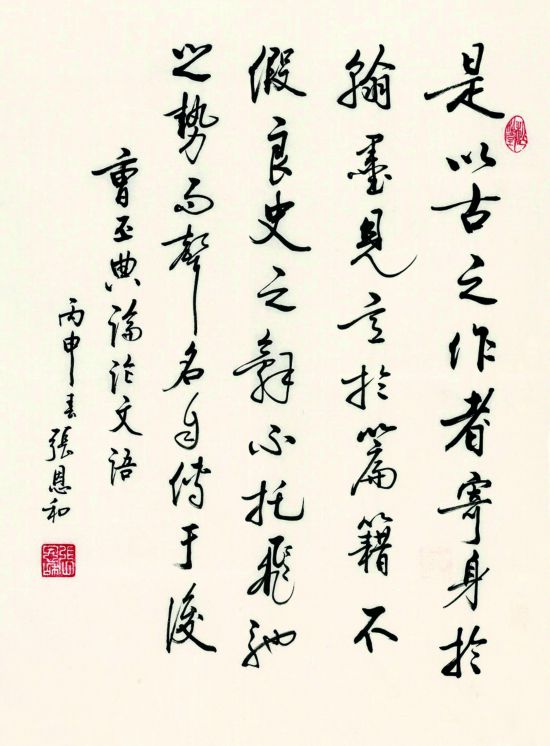 是以古之作者寄身於
翰墨見意於篇籍不
假良史之辭不托飛馳
之勢而聲名自傳于後
曹丕典論論文語
丙申春張恩和